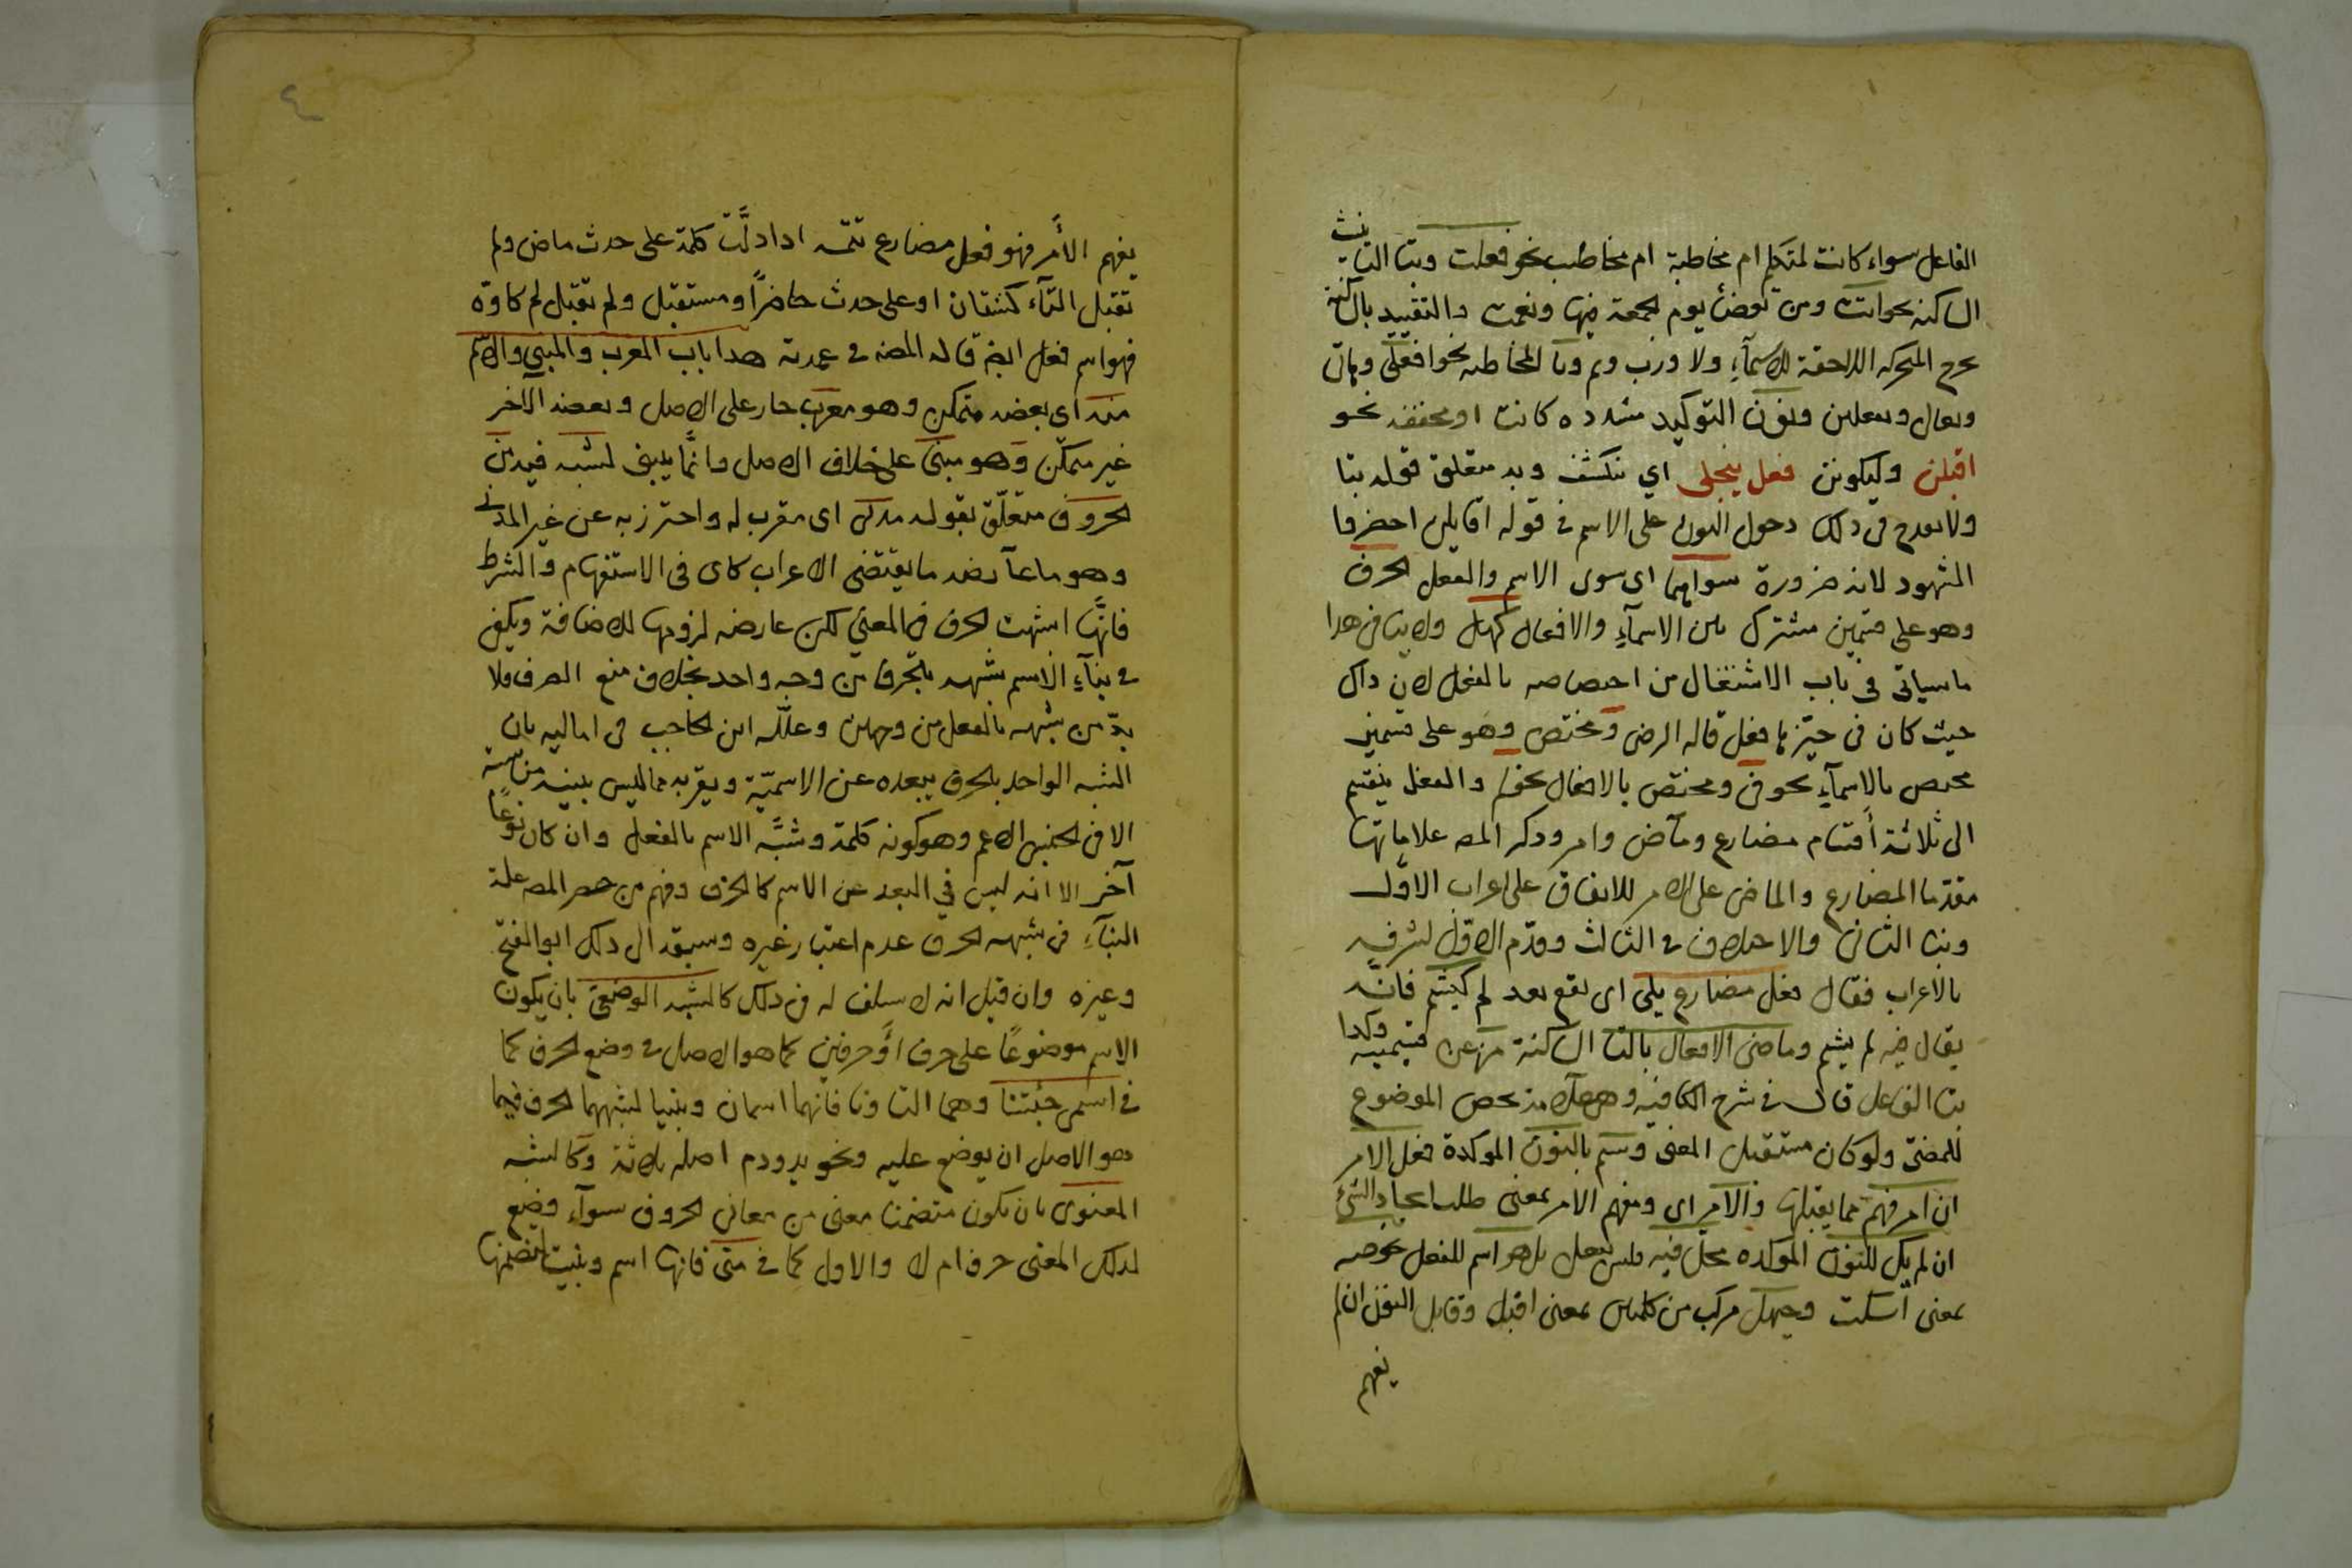 الفاعل سواء كانت لمتكلم ام مخاطبة ام مخاطب نحو فعلت وبتا التانيث
الساكنه نحو اتت ومن توضأ يوم الجمعة فبها ونعمت والتقييد بالساكنة
يخرج المتحركه اللاحقة للاسماء ولا ورب وثم ويا المخاطبه نحو افعلي وهاتي
وتعالي وتفعلين ونون التوكيد مشدده كانت او مخففه نحو
اقبلن وليكونن فعل ينجلى اي ينكشف وبه متعلق قوله بتا
ولا يقدح فى ذلك دخول النون على الاسم في قوله اقايلن احضروا
الشهود لانه ضرورة سواهما اى سوى الاسم والفعل الحرف
وهو على قسمين مشترك بين الاسماء والافعال كهل ولا ينافى هذا
ما سياتى فى باب الاشتغال من اختصاصه بالفعل لان ذاك
حيث كان فى حيزها فعل قاله الرضى ومختص وهو على قسمين
مختص بالاسماء نحو فى ومختص بالافعال نحو لم والفعل ينقسم
الى ثلاثة أقسام مضارع وماض وامر وذكر المصـ علاماتها
مقدما المضارع والماضى على الامر للاتفاق على اعراب الاول
وبنا الثانى والاختلاف في الثالث وقدم الاول لشرفه
بالاعراب فقال فعل مضارع يلى اى يقع بعد لم كيشم فانه
يقال فيه لم يشم وماضى الافعال بالتا الساكنة مز عن قسيميه وكذا
بتا الفاعل قال في شرح الكافيه وهى علامة تخص الموضوع
للمضى ولو كان مستقبل المعنى وسم بالنون الموكدة فعل الامر
ان امر فهم مما يقبلها والامر اى ومفهم الامر بمعنى طلب ايجاد الشىء
ان لم يك للنون الموكده محل فيه فليس بفعل بل هو اسم للفعل نحو صه
بمعنى اسكت وحيهل مركب من كلمتين بمعنى اقبل وقابل النون ان لم
يفهم
٤
يفهم الأمر فهو فعل مضارع تتمه اذا دلّت كلمة على حدث ماض ولم
تقبل التاء كشتان او على حدث حاضراً ومستقبل ولم تقبل لم كاوّه
فهو اسم فعل ايضا قاله المصنف في عمدته هذا باب المعرب والمبني والاسم
منه اى بعضه متمكن وهو معرب جار على الاصل وبعضه الآخر
غير متمكن وهو مبنى على خلاف الاصل وانّما يبنى لشبه فيه من
الحروف متعلّق بقوله مدنى اى مقرب له واحترز به عن غير المدني
وهو ما عارضه ما يقتضى الاعراب كاى فى الاستفهام والشرط
فانّها اشبهت الحرف فى المعنى لكن عارضه لزومها للاضافة ويكفى
في بناء الاسم شبهه بالحرف من وجه واحد بخلاف منع الصرف فلا
بدّ من شبهه بالفعل من وجهين وعلله ابن الحاجب فى اماليه بان
الشبه الواحد بالحرف يبعده عن الاسميّة ويقربه مما ليس بينه مناسبة
الا فى الجنس الاعم وهو كونه كلمة وشبه الاسم بالفعل وان كان نوعاً
آخر الا انه ليس في البعد عن الاسم كالحرف وفهم من حصر المصـ علة
البناء فى شبهه الحرف عدم اعتبار غيره وسبقه الى ذلك ابو الفتح
وغيره وان قيل انه لا سلف له فى ذلك كالشبه الوضعى بان يكون
الاسم موضوعاً على حرف أو حرفين كما هو الاصل في وضع الحرف كما
في اسمى جئتنا وهما التا ونا فانهما اسمان وبنيا لشبههما الحرف فيما
هو الاصل ان يوضع عليه ونحو يد ودم اصله ثلاثة وكالشبه
المعنوى بان يكون متضمنا معنى من معانى الحروف سواء وضع
لذلك المعنى حرف ام لا والاول كما في متى فانها اسم وبنيت لتضمنها